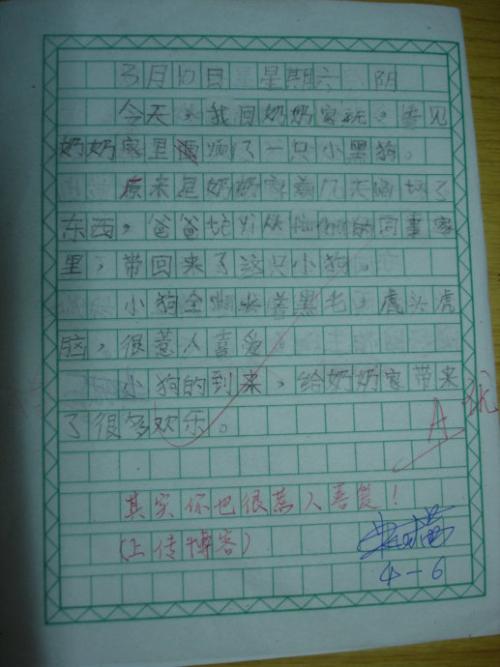 3月10日 星期六 阴
今天，我回奶奶家玩，看见
奶奶家里 了一只小黑狗。
原来是奶奶家前几天 了
东西，爸爸 从 的同事家
里，带回来了这只小狗。
小狗全 黑毛，虎头虎
脑，很惹人喜爱。
小狗的到来，给奶奶家带来
了很多欢乐。
A 优
其实你也很惹人喜爱！
(上传博客)
4-6